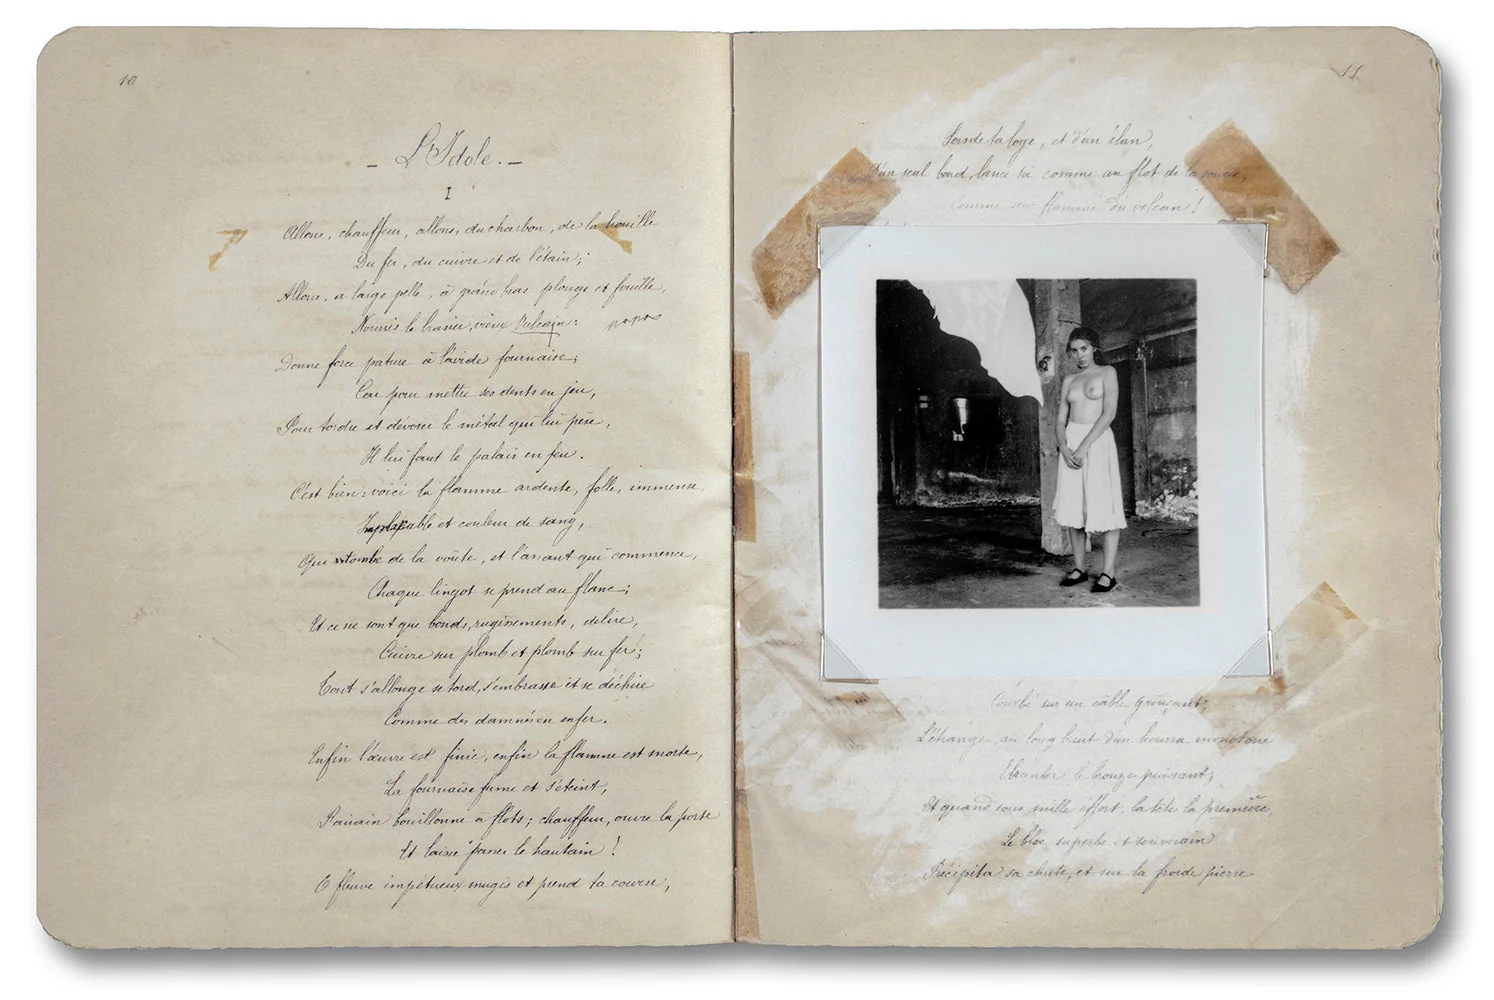 10
_ L'Idole. _
I
Allons, chauffeur, allons, du charbon, de la houille
Du fer, du cuivre et de l'étain;
Allons, a large pelle, à grand bras plonge et fouille,
Nourris le brasier, vieux Vulcain:
Donne force pature à l'avide fournaise;
Car pour mettre ses dents en jeu,
Pour tordre et dévorer le métal qui lui pèse,
Il lui faut le palais en feu.
C'est bien: voici la flamme ardente, folle, immense,
Implacable et couleur de sang,
Qui tombe de la voûte, et l'assaut qui commence,
Chaque lingot se prend au flanc;
Et ce ne sont que bonds, rugissements, délire,
Cuivre sur plomb et plomb sur fer;
Tout s'allonge se tord, s'embrasse et se déchire
Comme des damnés en enfer.
Enfin l'œuvre est finie, enfin la flamme est morte,
La fournaise fume et s'éteint,
L'airain bouillonne a flots; chauffeur, ouvre la porte
Et laisse passer le hautain!
O fleuve impétueux mugis et prend ta course,
11
Sors de ta loge, et d'un élan,
D'un seul bond, lance toi comme un flot de la source,
Comme une flamme du volcan!
Courbé sur un câble grinçant,
L'étranger, au long bruit d'un hourra monotone
Ebranler le bronze puissant;
Et quand sous mille effort, la tête la première,
Le bloc superbe et souverain
Précipita sa chute, et sur la froide pierre